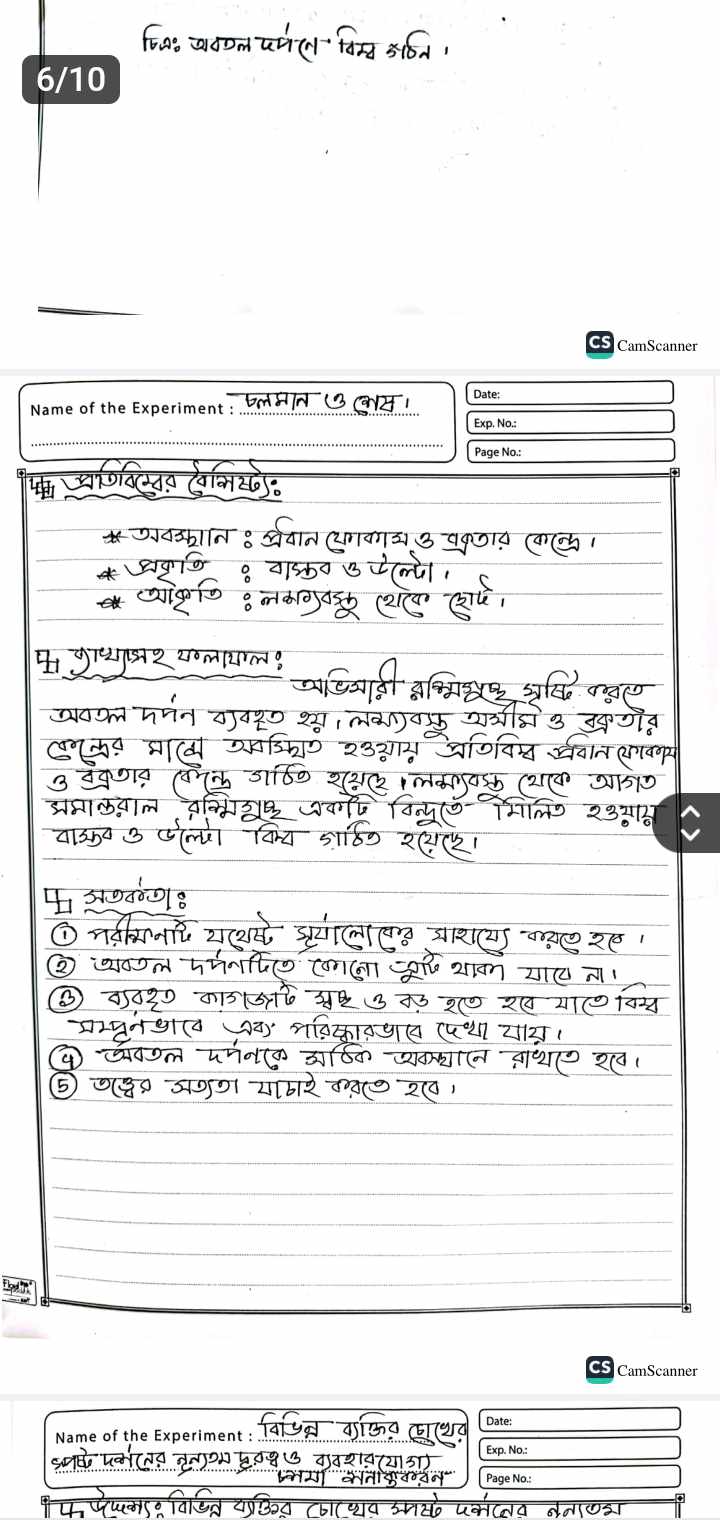 চিত্রঃ অবতল দর্পনে বিম্ব গঠন।
6/10
CS CamScanner
Name of the Experiment : চলমান ও শেষ।
Date:
Exp. No.:
Page No.:
প্রতিবিম্বের বৈশিষ্ট্যঃ
* অবস্থান : প্রধান ফোকাস ও বক্রতার কেন্দ্রে।
* প্রকৃতি : বাস্তব ও উল্টো।
* আকৃতি : লক্ষ্যবস্তু থেকে ছোট।
ব্যাখ্যাসহ ফলাফল:
অভিসারী রশ্মিগুচ্ছ সৃষ্টি করতে
অবতল দর্পন ব্যবহৃত হয়। লক্ষ্যবস্তু অসীম ও বক্রতার
কেন্দ্রের মাঝে অবস্থিত হওয়ায় প্রতিবিম্ব প্রধান ফোকাস
ও বক্রতার কেন্দ্রে গঠিত হয়েছে। লক্ষ্যবস্তু থেকে আগত
সমান্তরাল রশ্মিগুচ্ছ একটি বিন্দুতে মিলিত হওয়ায়
বাস্তব ও উল্টো বিম্ব গঠিত হয়েছে।
সতর্কতাঃ
① পরীক্ষনটি যথেষ্ট সূর্যালোকের সাহায্যে করতে হবে।
② অবতল দর্পনটিতে কোনো ত্রুটি থাকা যাবে না।
③ ব্যবহৃত কাগজটি স্বচ্ছ ও বড় হতে হবে যাতে বিম্ব
সম্পূর্নভাবে এবং পরিষ্কারভাবে দেখা যায়।
④ অবতল দর্পনকে সঠিক অবস্থানে রাখতে হবে।
⑤ তত্ত্বের সত্যতা যাচাই করতে হবে।
CS CamScanner
Name of the Experiment : বিভিন্ন ব্যক্তির চোখের
স্পষ্ট দর্শনের নূন্যতম দূরত্ব ও ব্যবহারযোগ্য
চশমা শনাক্তকরন
Date:
Exp. No.:
Page No.:
উদ্দেশ্যঃ বিভিন্ন ব্যক্তির চোখের স্পষ্ট দর্শনের নূন্যতম